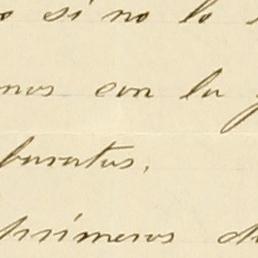 o si no lo
nos con la
baratas.
primeros